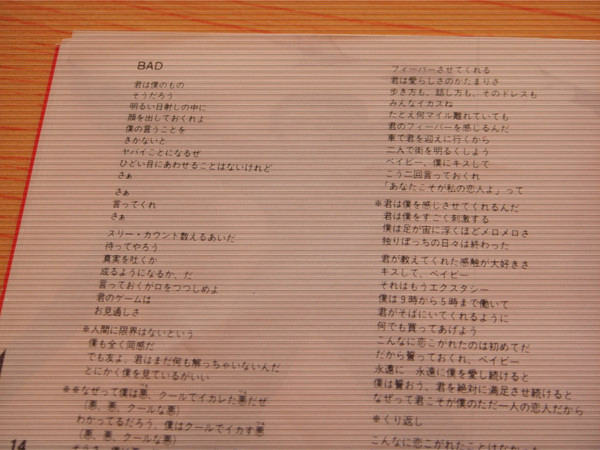 BAD
君は僕のもの
そうだろう
明るい日射しの中に
顔を出しておくれよ
僕の言うことを
きかないと
ヤバイことになるぜ
ひどい目にあわせることはないけれど
さぁ
さぁ
言ってくれ
さぁ
スリー・カウント数えるあいだ
待ってやろう
真実を吐くか
成るようになるか、だ
言っておくがロをつつしめよ
君のゲームは
お見通しさ
※人間に限界はないという
僕も全く同感だ
でも友よ、君はまだ何も解っちゃいないんだ
とにかく僕を見ているがいい
※※なぜって僕は悪、クールでイカレた悪だぜ
（悪、悪、クールな悪）
わかってるだろう、僕はクールでイカす悪
（悪、悪、クールな悪）
14
フィーバーさせてくれる
君は愛らしさのかたまりさ
歩き方も、話し方も、そのドレスも
みんなイカスね
たとえ何マイル離れていても
君のフィーバーを感じるんだ
車で君を迎えに行くから
二人で街を明るくしよう
ベイビー、僕にキスして
こう二回言っておくれ
「あなたこそが私の恋人よ」って
※君は僕を感じさせてくれるんだ
君は僕をすごく刺激する
僕は足が宙に浮くほどメロメロさ
独りぼっちの日々は終わった
君が教えてくれた感触が大好きさ
キスして、ベイビー
それはもうエクスタシー
僕は9時から5時まで働いて
君がそばにいてくれるように
何でも買ってあげよう
こんなに恋こがれたのは初めてだ
だから誓っておくれ、ベイビー
永遠に　永遠に僕を愛し続けると
僕は誓おう、君を絶対に満足させ続けると
なぜって君こそが僕のただ一人の恋人だから
※くり返し
こんなに恋こがれたことはなかった